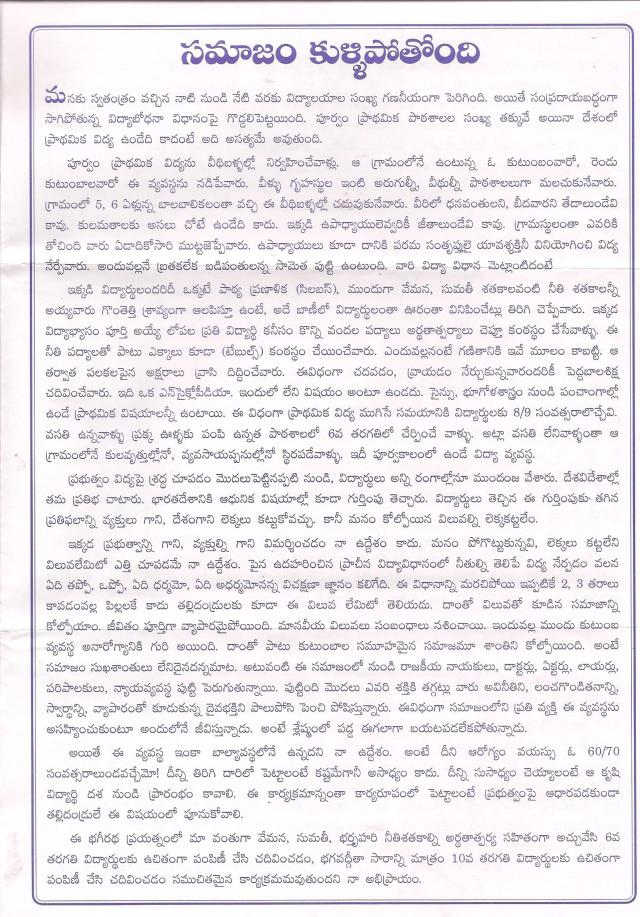 సమాజం కుళ్ళిపోతోంది
మనకు స్వతంత్రం వచ్చిన నాటి నుండి నేటి వరకు విద్యాలయాల సంఖ్య గణనీయంగా పెరిగింది. అయితే సంప్రదాయబద్ధంగా
సాగిపోతున్న విద్యాబోధనా విధానంపై గొడ్డలిపెట్టయింది. పూర్వం ప్రాథమిక పాఠశాలల సంఖ్య తక్కువే అయినా దేశంలో
ప్రాథమిక విద్య ఉండేది కాదంటే అది అసత్యమే అవుతుంది.
పూర్వం ప్రాథమిక విద్యను వీథిబళ్ళల్లో నిర్వహించేవాళ్లు. ఆ గ్రామంలోనే ఉంటున్న ఓ కుటుంబంవారో, రెండు
కుటుంబాలవారో ఈ వ్యవస్థను నడిపేవారు. వీళ్ళు గృహస్థుల ఇంటి అరుగుల్నీ, వీథుల్నీ పాఠశాలలుగా మలచుకునేవారు.
గ్రామంలో 5, 6 ఏళ్లున్న బాలబాలికలంతా వచ్చి ఈ వీథిబళ్ళల్లో చదువుకునేవారు. వీరిలో ధనవంతులని, బీదవారని తేడాలుండేవి
కావు. కులమతాలకు అసలు చోటే ఉండేది కాదు. ఇక్కడి ఉపాధ్యాయులెవ్వరికీ జీతాలుండేవి కావు. గ్రామస్థులంతా ఎవరికి
తోచింది వారు ఏడాదికోసారి ముట్టజెప్పేవారు. ఉపాధ్యాయులు కూడా దానికి పరమ సంతృప్తులై యావశ్శక్తినీ వినియోగించి విద్య
నేర్పేవారు. అందువల్లనే బ్రతకలేక బడిపంతులన్న సామెత పుట్టి ఉంటుంది. వారి విద్యా విధాన మెట్లాంటిదంటే
ఇక్కడి విద్యార్థులందరిదీ ఒక్కటే పాఠ్య ప్రణాళిక (సిలబస్), ముందుగా వేమన, సుమతీ శతకాలవంటి నీతి శతకాలన్నీ
అయ్యవారు గొంతెత్తి శ్రావ్యంగా ఆలపిస్తూ ఉంటే, అదే బాణీలో విద్యార్థులంతా ఊరంతా వినిపించేట్లు తిరిగి చెప్పేవారు. ఇక్కడ
విద్యాభ్యాసం పూర్తి అయ్యే లోపల ప్రతి విద్యార్థి కనీసం కొన్ని వందల పద్యాలు అర్థతాత్పర్యాలు చెప్తూ కంఠస్థం చేసేవాళ్లు. ఈ
నీతి పద్యాలతో పాటు ఎక్కాలు కూడా (టేబుల్స్) కంఠస్థం చేయించేవారు. ఎందువల్లనంటే గణితానికి ఇవే మూలం కాబట్టి. ఆ
తర్వాత పలకలపైన అక్షరాలు వ్రాసి దిద్దించేవారు. ఈవిధంగా చదవడం, వ్రాయడం నేర్చుకున్నవారందరికీ పెద్దబాలశిక్ష
చదివించేవారు. ఇది ఒక ఎన్‌సైక్లోపీడియా. ఇందులో లేని విషయం అంటూ ఉండదు. సైన్సు, భూగోళశాస్త్రం నుండి పంచాంగాల్లో
ఉండే ప్రాథమిక విషయాలన్నీ ఉంటాయి. ఈ విధంగా ప్రాథమిక విద్య ముగిసే సమయానికి విద్యార్థులకు 8/9 సంవత్సరాలొచ్చేవి.
వసతి ఉన్నవాళ్లు ప్రక్క ఊళ్ళకు పంపి ఉన్నత పాఠశాలలో 6వ తరగతిలో చేర్పించే వాళ్లు. అట్లా వసతి లేనివాళ్ళంతా ఆ
గ్రామంలోనే కులవృత్తుల్లోనో, వ్యవసాయప్పనుల్లోనో స్థిరపడేవాళ్లు. ఇదీ పూర్వకాలంలో ఉండే విద్యా వ్యవస్థ.
ప్రభుత్వం విద్యపై శ్రద్ధ చూపడం మొదలుపెట్టినప్పటి నుండి, విద్యార్థులు అన్ని రంగాల్లోనూ ముందంజ వేశారు. దేశవిదేశాల్లో
తమ ప్రతిభ చాటారు. భారతదేశానికి ఆధునిక విషయాల్లో కూడా గుర్తింపు తెచ్చారు. విద్యార్థులు తెచ్చిన ఈ గుర్తింపుకు తగిన
ప్రతిఫలాన్ని వ్యక్తులు గాని, దేశంగాని లెక్కలు కట్టుకోవచ్చు. కానీ మనం కోల్పోయిన విలువల్ని లెక్కకట్టలేం.
ఇక్కడ ప్రభుత్వాన్ని గాని, వ్యక్తుల్ని గాని విమర్శించడం నా ఉద్దేశం కాదు. మనం పోగొట్టుకున్నవి, లెక్కలు కట్టలేని
విలువలేమిటో ఎత్తి చూపడమే నా ఉద్దేశం. పైన ఉదహరించిన ప్రాచీన విద్యావిధానంలో నీతుల్ని తెలిపే విద్య నేర్పడం వలన
ఏది తప్పో, ఒప్పో, ఏది ధర్మమో, ఏది అధర్మమోనన్న విచక్షణా జ్ఞానం కలిగేది. ఈ విధానాన్ని మరచిపోయి ఇప్పటికే 2, 3 తరాలు
కావడంవల్ల పిల్లలకే కాదు తల్లిదండ్రులకు కూడా ఈ విలువ లేమిటో తెలియదు. దాంతో విలువతో కూడిన సమాజాన్ని
కోల్పోయాం. జీవితం పూర్తిగా వ్యాపారమైపోయింది. మానవీయ విలువలు సంబంధాలు నశించాయి. ఇందువల్ల ముందు కుటుంబ
వ్యవస్థ అనారోగ్యానికి గురి అయింది. దాంతో పాటు కుటుంబాల సమూహమైన సమాజమూ శాంతిని కోల్పోయింది. అంటే
సమాజం సుఖశాంతులు లేనిదైనదన్నమాట. అటువంటి ఈ సమాజంలో నుండి రాజకీయ నాయకులు, డాక్టర్లు, ఏక్టర్లు, లాయర్లు,
పరిపాలకులు, న్యాయవ్యవస్థ పుట్టి పెరుగుతున్నాయి. పుట్టింది మొదలు ఎవరి శక్తికి తగ్గట్టు వారు అవినీతిని, లంచగొండితనాన్ని,
స్వార్థాన్ని, వ్యాపారంతో కూడుకున్న దైవభక్తిని పాలుపోసి పెంచి పోషిస్తున్నారు. ఈవిధంగా సమాజంలోని ప్రతి వ్యక్తీ ఈ వ్యవస్థను
అసహ్యించుకుంటూ అందులోనే జీవిస్తున్నాడు. అంటే శ్లేష్మంలో పడ్డ ఈగలాగా బయటపడలేకపోతున్నాడు.
అయితే ఈ వ్యవస్థ ఇంకా బాల్యావస్థలోనే ఉన్నదని నా ఉద్దేశం. అంటే దీని ఆరోగ్యం వయస్సు ఓ 60/70
సంవత్సరాలుండవచ్చేమో! దీన్ని తిరిగి దారిలో పెట్టాలంటే కష్టమేగానీ అసాధ్యం కాదు. దీన్ని సుసాధ్యం చెయ్యాలంటే ఆ కృషి
విద్యార్థి దశ నుండి ప్రారంభం కావాలి. ఈ కార్యక్రమాన్నంతా కార్యరూపంలో పెట్టాలంటే ప్రభుత్వంపై ఆధారపడకుండా
తల్లిదండ్రులే ఈ విషయంలో పూనుకోవాలి.
ఈ భగీరథ ప్రయత్నంలో మా వంతుగా వేమన, సుమతీ, భర్తృహరి నీతిశతకాల్ని అర్థతాత్పర్య సహితంగా అచ్చువేసి 6వ
తరగతి విద్యార్థులకు ఉచితంగా పంపిణీ చేసి చదివించడం, భగవద్గీతా సారాన్ని మాత్రం 10వ తరగతి విద్యార్థులకు ఉచితంగా
పంపిణీ చేసి చదివించడం సముచితమైన కార్యక్రమమవుతుందని నా అభిప్రాయం.